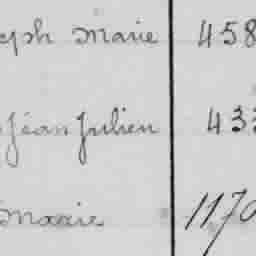 eph Marie 458
Jean Julien 433
Marie 1170